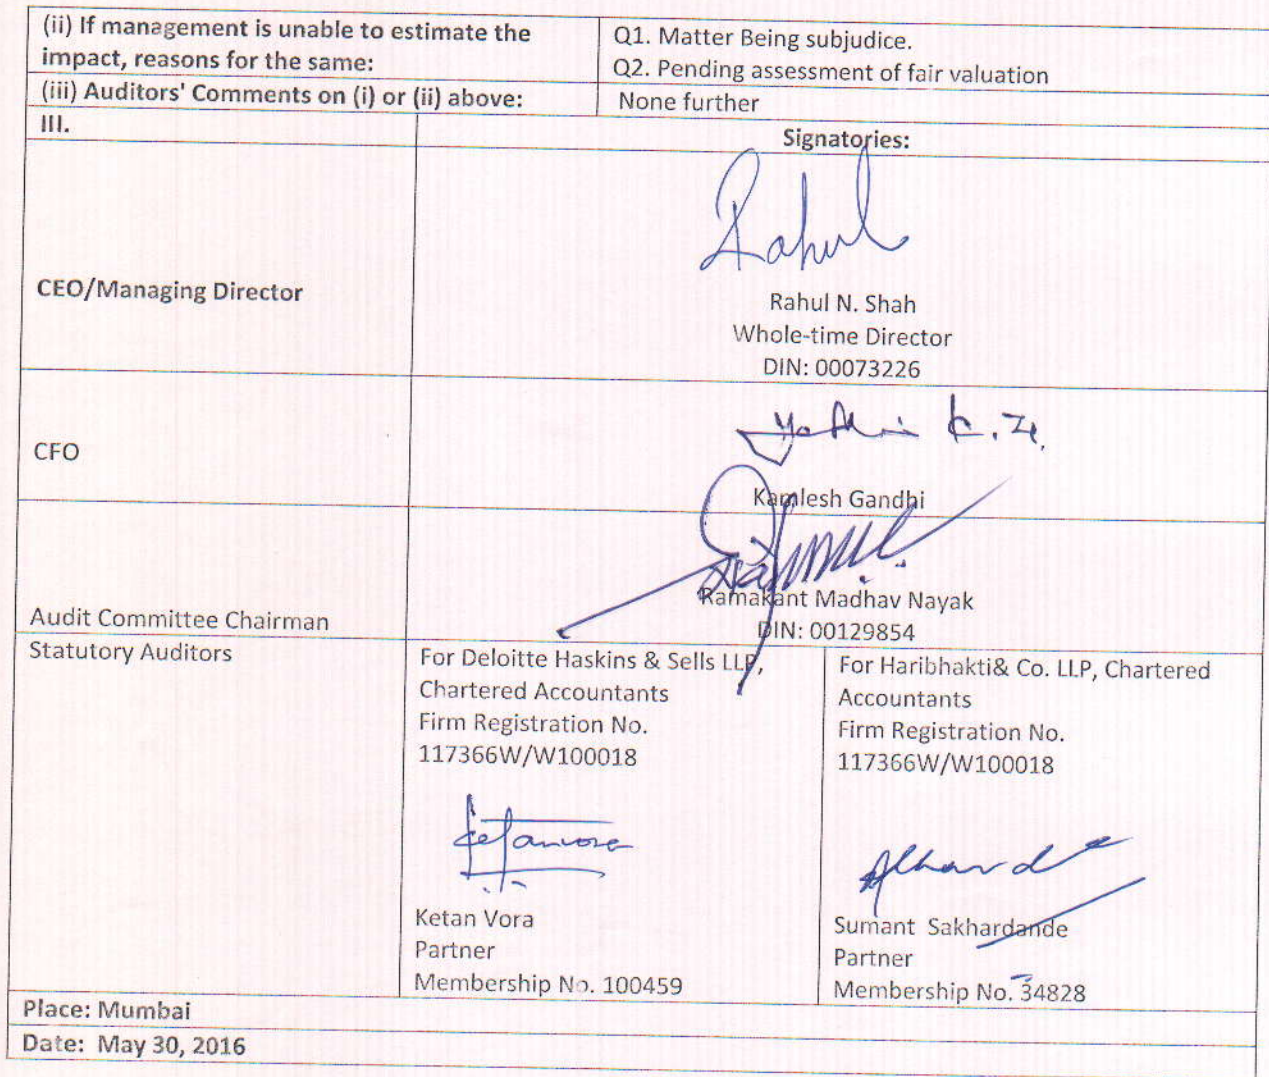 (ii) If management is unable to estimate the
impact, reasons for the same:
Q1. Matter Being subjudice.
Q2. Pending assessment of fair valuation
(iii) Auditors' Comments on (i) or (ii) above:
None further
III.
Signatories:
Rahul
CEO/Managing Director
Rahul N. Shah
Whole-time Director
DIN: 00073226
CFO
Kamlesh Gandhi
Audit Committee Chairman
Ramakant Madhav Nayak
DIN: 00129854
Statutory Auditors
For Deloitte Haskins & Sells LLP,
Chartered Accountants
Firm Registration No.
117366W/W100018
Ketan Vora
Partner
Membership No. 100459
For Haribhakti& Co. LLP, Chartered
Accountants
Firm Registration No.
117366W/W100018
Sumant Sakhardande
Partner
Membership No. 34828
Place: Mumbai
Date: May 30, 2016